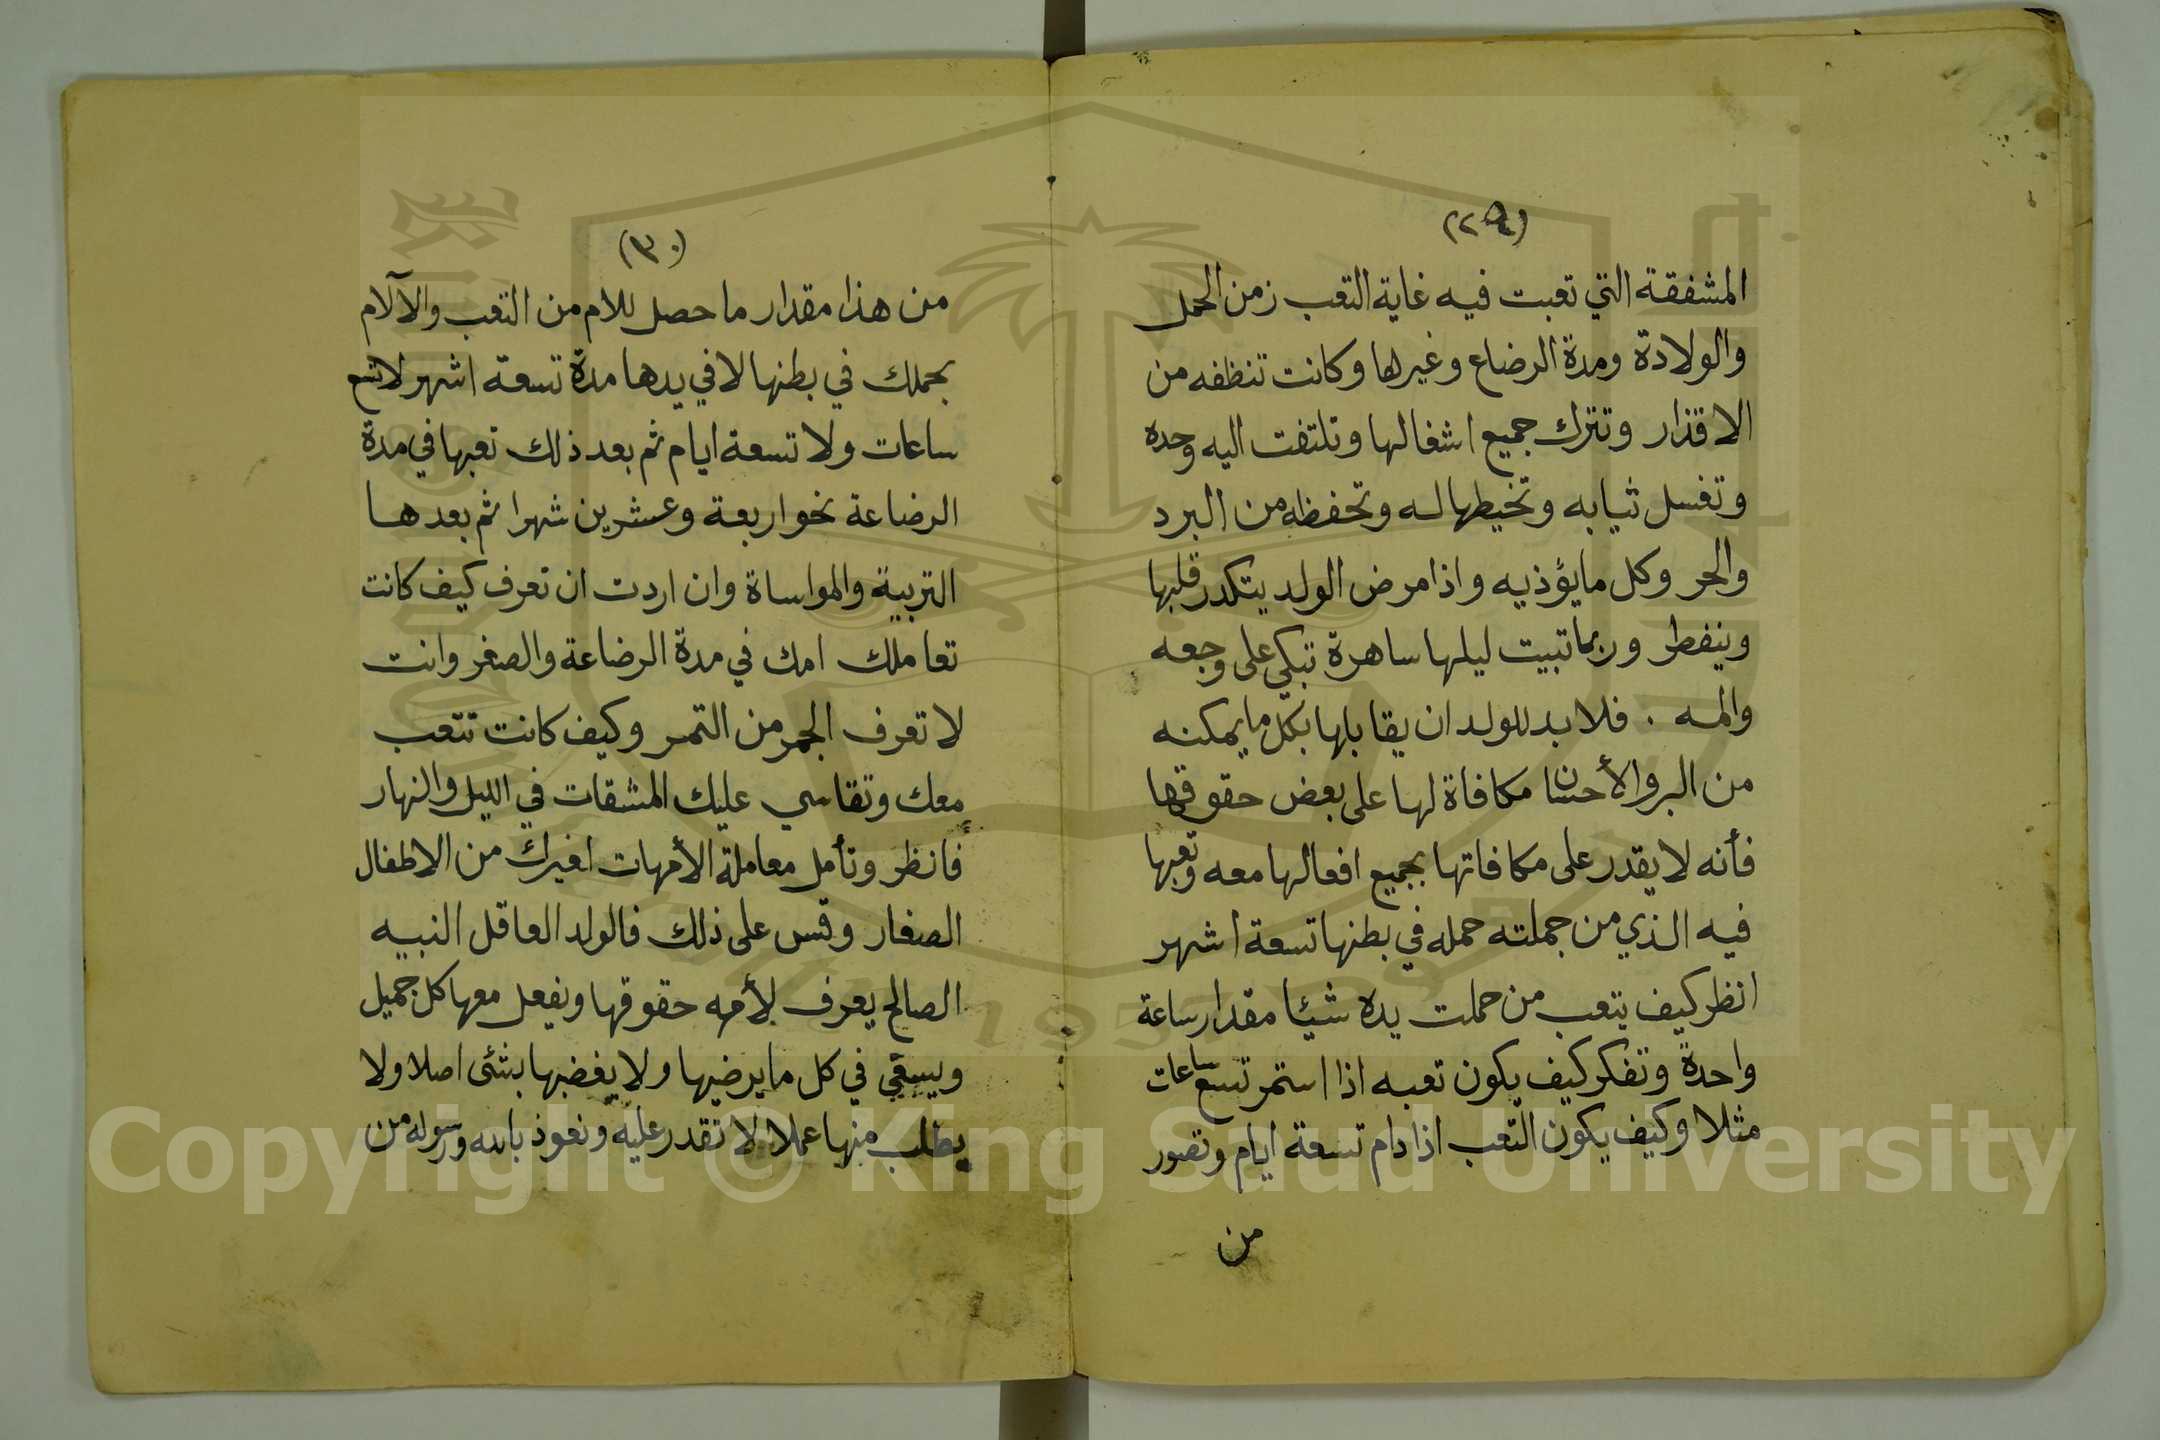 (٢٩)
المشفقة التي تعبت فيه غاية التعب زمن الحمل
والولادة ومدة الرضاع وغيرها وكانت تنظفه من
الاقذار وتترك جميع اشغالها وتلتفت اليه وحده
وتغسل ثيابه وتخيطها له وتحفظه من البرد
والحر وكل ما يؤذيه واذا مرض الولد يتكدر قلبها
وينفطر وربما تبيت ليلها ساهرة تبكي على وجعه
والمه . فلا بد للولد ان يقابلها بكل ما يمكنه
من البر والأحسان مكافاة لها على بعض حقوقها
فأنه لا يقدر على مكافاتها بجميع افعالها معه وتعبها
فيه الذي من جملته حمله في بطنها تسعة اشهر
انظر كيف يتعب من حملت يده شيئا مقدار ساعة
واحدة وتفكر كيف يكون تعبه اذا استمر تسع ساعات
مثلا وكيف يكون التعب اذا دام تسعة ايام وتصور
من
(٣٠)
من هذا مقدار ما حصل للام من التعب والآلام
بحملك في بطنها لا في يدها مدة تسعة اشهر لا تسع
ساعات ولا تسعة ايام ثم بعد ذلك تعبها في مدة
الرضاعة نحو اربعة وعشرين شهرا ثم بعدها
التربية والمواساة وان اردت ان تعرف كيف كانت
تعاملك امك في مدة الرضاعة والصغر وانت
لا تعرف الجمر من التمر وكيف كانت تتعب
معك وتقاسي عليك المشقات في الليل والنهار
فانظر وتأمل معاملة الأمهات لغيرك من الاطفال
الصغار وقس على ذلك فالولد العاقل النبيه
الصالح يعرف لأمه حقوقها ويفعل معها كل جميل
ويسعى في كل ما يرضيها ولا يغضبها بشئ اصلا ولا
يطلب منها عملا لا تقدر عليه ونعوذ بالله ورسوله من
Copyright © King Saud University
1957